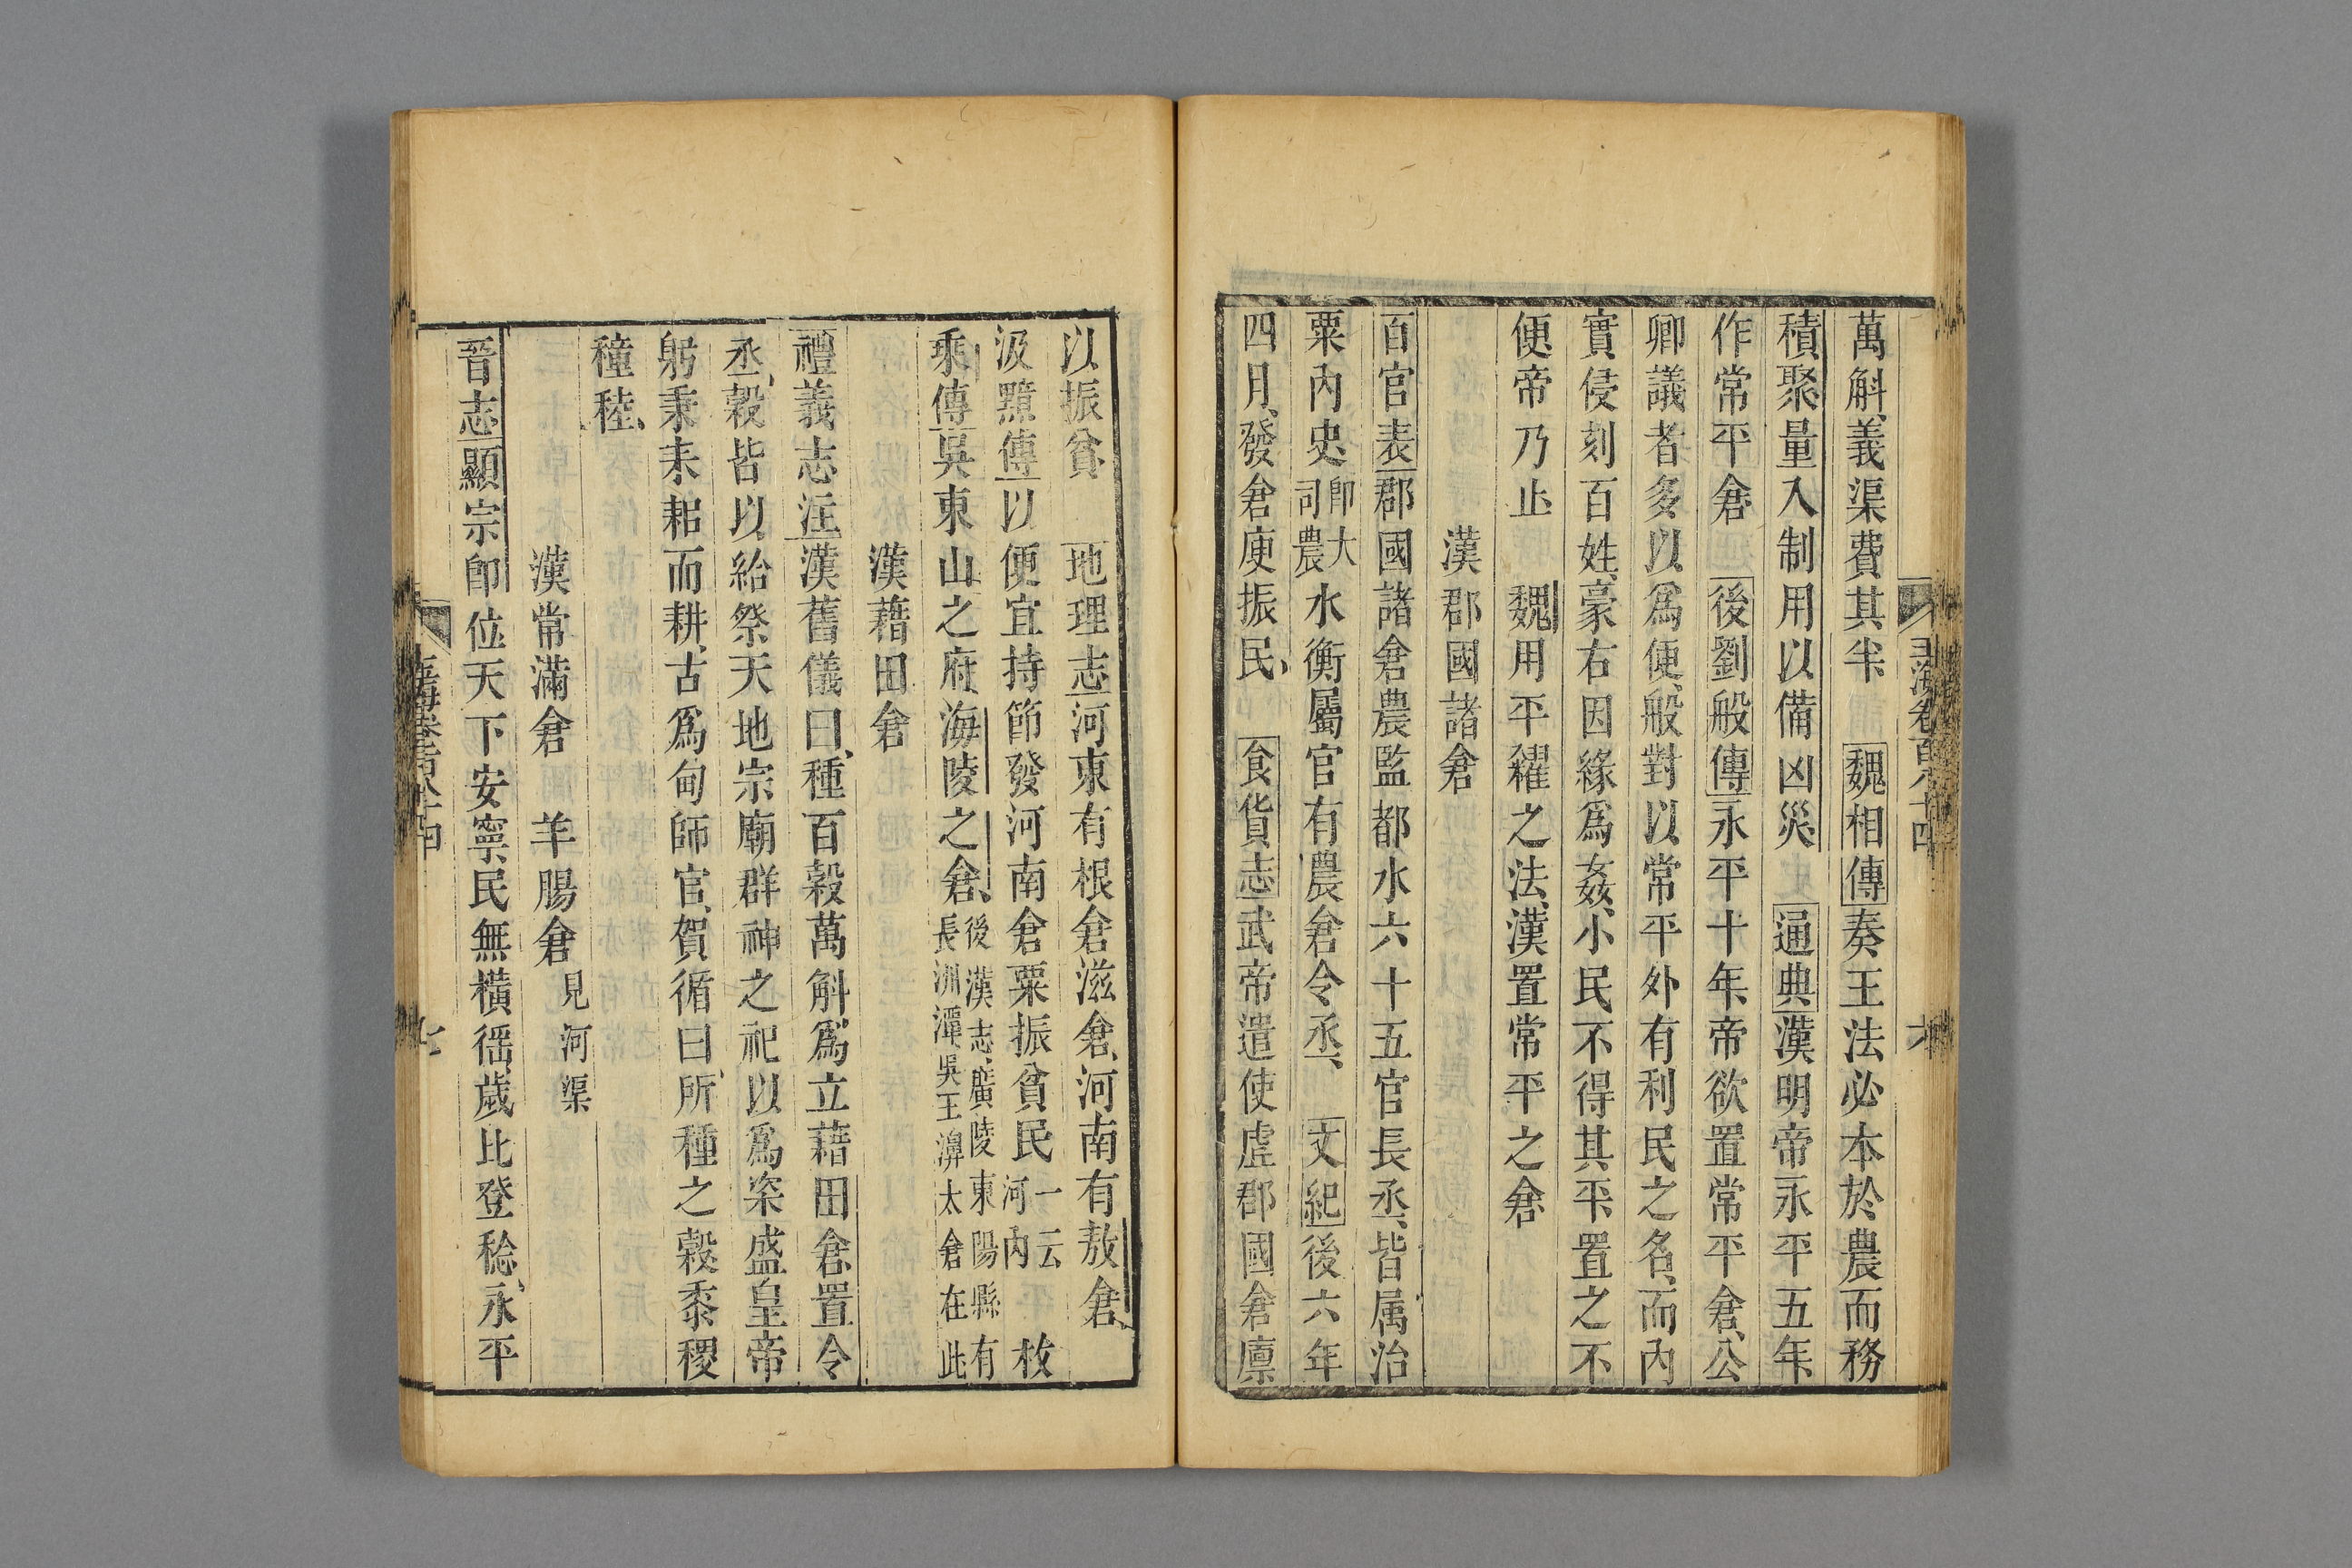 玉海卷百八十四
六
萬斛義渠費其半 魏相傳奏王法必本於農而務
積聚量入制用以備凶災 通典漢明帝永平五年
作常平倉 後劉般傳永平十年帝欲置常平倉公
卿議者多以為便般對以常平外有利民之名而內
實侵刻百姓豪右因緣爲姦小民不得其平置之不
便帝乃止 魏用平糴之法漢置常平之倉
漢郡國諸倉
百官表郡國諸倉農監都水六十五官長丞皆属治
粟內史即大司農水衡屬官有農倉令丞 文紀後六年
四月發倉庾振民 食貨志武帝遣使虛郡國倉廩
以振貧 地理志河東有根倉滋倉河南有敖倉
汲黯傳以便宜持節發河南倉粟振貧民一云河內 枚
乘傳吳東山之府海陵之倉後漢志廣陵東陽縣有長洲潭吳王濞太倉在此
漢藉田倉
禮義志注漢舊儀曰種百穀萬斛爲立藉田倉置令
丞穀皆以給祭天地宗廟群神之祀以爲粢盛皇帝
躬秉耒耜而耕古爲甸師官賀循曰所種之穀黍稷
穜稑
漢常滿倉 羊腸倉見河渠
晉志顯宗卽位天下安寧民無橫徭歲比登稔永平
玉海卷百八十四
七